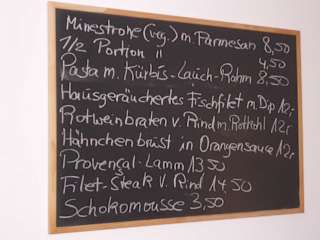 Minestrone (veg.) m. Parmesan 8,50
1/2 Portion " 4,50
Pasta m. Kürbis-Lauch-Rahm 8,50
Hausgeräuchertes Fischfilet m. Dip 12,-
Rotweinbraten v. Rind m. Rotkohl 12,-
Hähnchenbrust in Orangensauce 12,-
Provençal-Lamm 13,50
Filet-Steak v. Rind 14,50
Schokomousse 3,50